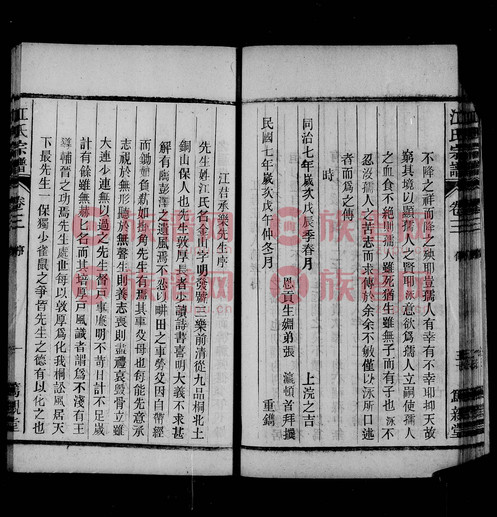 江氏宗譜
卷三
篤親堂
不降之祥而降之殃耶豈孺人有幸有不幸耶抑天故
窮其境以顯孺人之賢耶泳意欲為孺人立嗣使孺人
之血食不絕則孺人雖死猶生雖無子而有子也泳不
忍沒孺人之苦志而求傳於余余不敏僅以泳所口述
者而為之傳
時
同治七年歲次戊辰季春月 上浣之吉
恩貢生姻弟張 瀛頓首拜撰
民國七年歲次戊午仲冬月 重鐫
江君承樂先生序
先生姓江氏名金山字明發號三樂前清從九品桐北土
銅山保人也生而敦厚長者步讀詩書喜明大義不求甚
解有陶彭澤之遺風焉不忍以畊田之事勞父因自帶經
而鋤薪負薪如掛角先生有焉其事父母也每能先意承
志視於無形聽於無聲生則養志喪則盡禮哀毀骨立雖
大連少連無以過之先生督戶事廉明不苟日計不足歲
計有餘雖無赫赫之名而其培厚戶風識者謂為不淺有王
鐸輔晉之功焉先生處世每以敦厚為化我桐訟風居天
下最先生一保獨少雀鼠之爭皆先生之德有以化之也
江氏宗譜
卷二
序
一
篤親堂